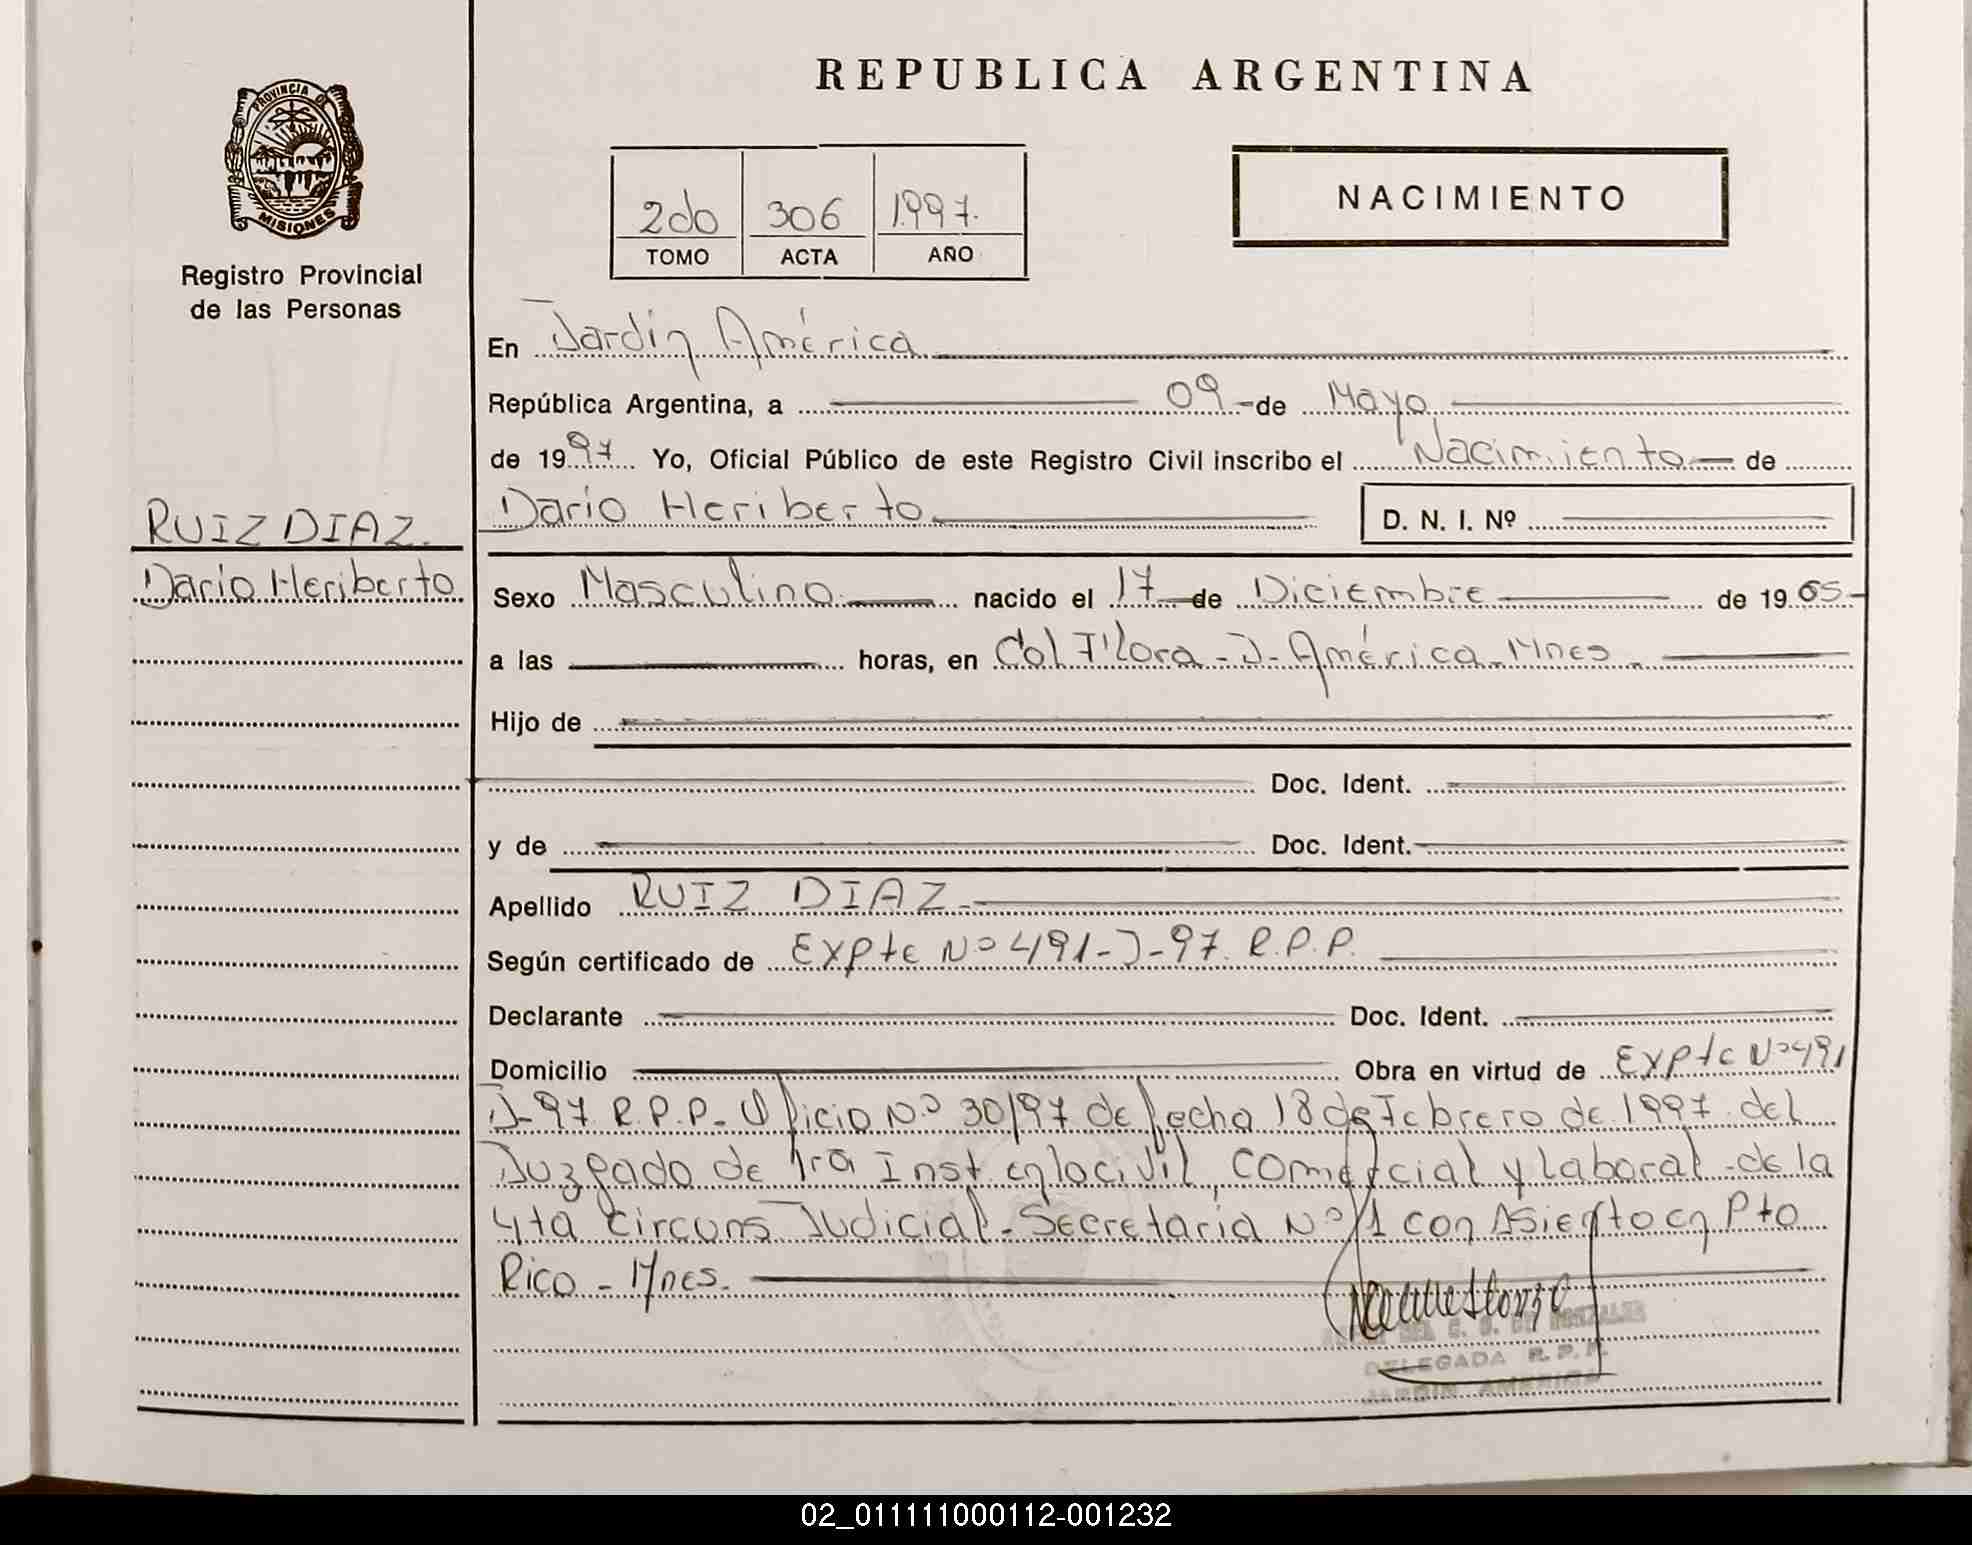 REPUBLICA ARGENTINA
PROVINCIA DE
MISIONES
Registro Provincial
de las Personas
2do 306 1997.
TOMO ACTA AÑO
NACIMIENTO
En Jardín América
República Argentina, a 09 de Mayo
de 1997 Yo, Oficial Público de este Registro Civil inscribo el Nacimiento de
Dario Heriberto D. N. I. Nº
RUIZ DIAZ.
Dario Heriberto
Sexo Masculino nacido el 17 de Diciembre de 1965
a las horas, en Col Flora - J- América. Mnes
Hijo de
Doc. Ident.
y de Doc. Ident.
Apellido RUIZ DIAZ.
Según certificado de Expte Nº 491-J-97. R.P.P.
Declarante Doc. Ident.
Domicilio Obra en virtud de Expte Nº 491
J-97 R.P.P. Oficio Nº 30/97 de fecha 18 de Febrero de 1997 del
Juzgado de 1ra Inst en lo civil, comercial y laboral de la
4ta circuns Judicial - Secretaria Nº 1 con Asiento en Pto
Rico - Mnes.
C. G. DE GONZALEZ
DELEGADA R.P.P.
JARDIN AMERICA
02_011111000112-001232